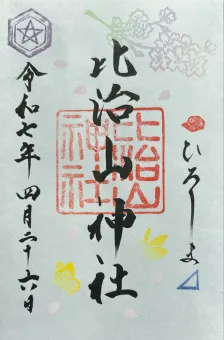 ひろしま
比治山神社
比治山神社
令和七年 四月二十六日